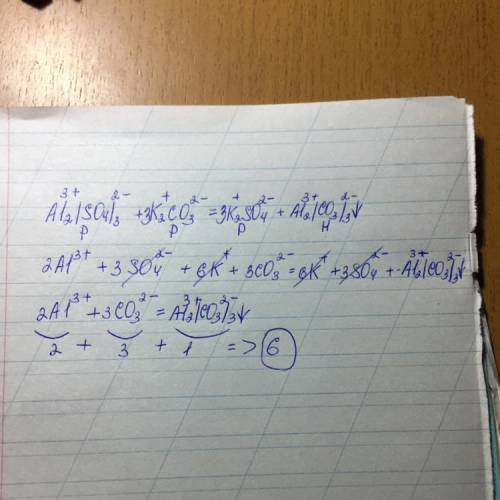 Al₂³⁺(SO₄)₃²⁻ + 3K₂⁺CO₃²⁻ = 3K₂⁺SO₄²⁻ + Al₂³⁺(CO₃)₃²⁻↓
р р р н
2Al³⁺ + 3SO₄²⁻ + 6K⁺ + 3CO₃²⁻ = 6K⁺ + 3SO₄²⁻ + Al₂³⁺(CO₃)₃²⁻↓
2Al³⁺ + 3CO₃²⁻ = Al₂³⁺(CO₃)₃²⁻↓
2 + 3 + 1 => 6